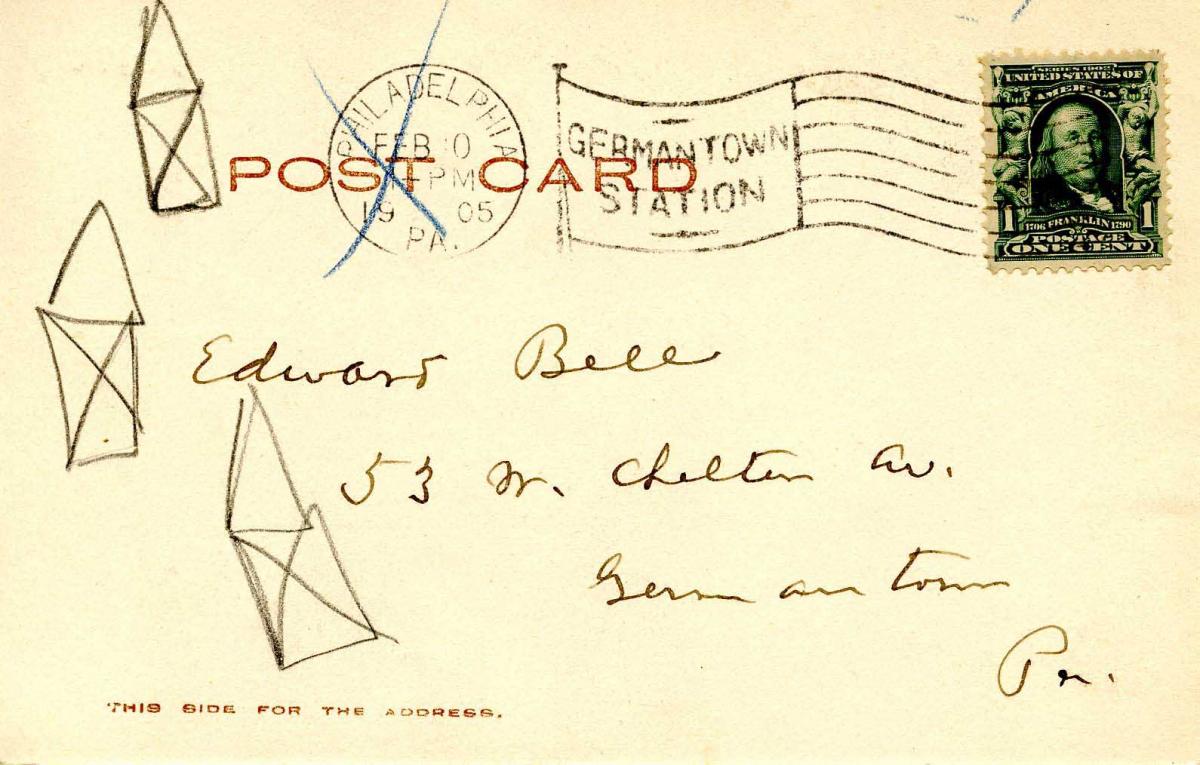 PHILADELPHIA
FEB 10
PM
19 05
PA.
GERMANTOWN
STATION
POST CARD
SERIES 1902
UNITED STATES OF
AMERICA
1 1
1706 FRANKLIN 1790
POSTAGE
ONE CENT
Edward Bell
53 W. Chelten Av.
Germantown
Pa.
THIS SIDE FOR THE ADDRESS.